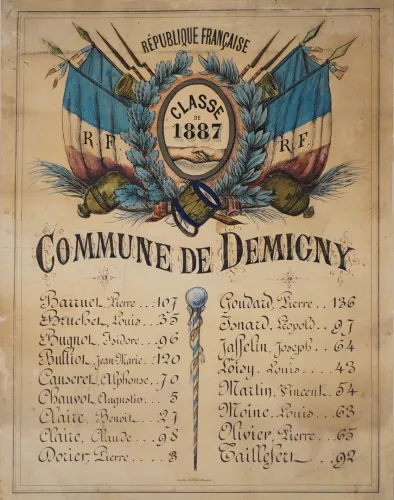 RÉPUBLIQUE FRANÇAISE
CLASSE
DE
1887
R.F.
R.F.
COMMUNE DE DEMIGNY
Barruet, Pierre...107
Bruchet, Louis...35
Bugnot, Isidore...96
Bulliot, Jean-Marie..120
Canseret, Alphonse.70
Chauvot, Augustin...5
Claire, Benoit...27
Claire, Claude...98
Dorier, Pierre....8
Goudard, Pierre..136
Isnard, Léopold..97
Jasselin, Joseph..64
Loisy, Louis....43
Martin, Vincent.54
Moine, Louis...63
Olivier, Pierre..65
Taillefert...92